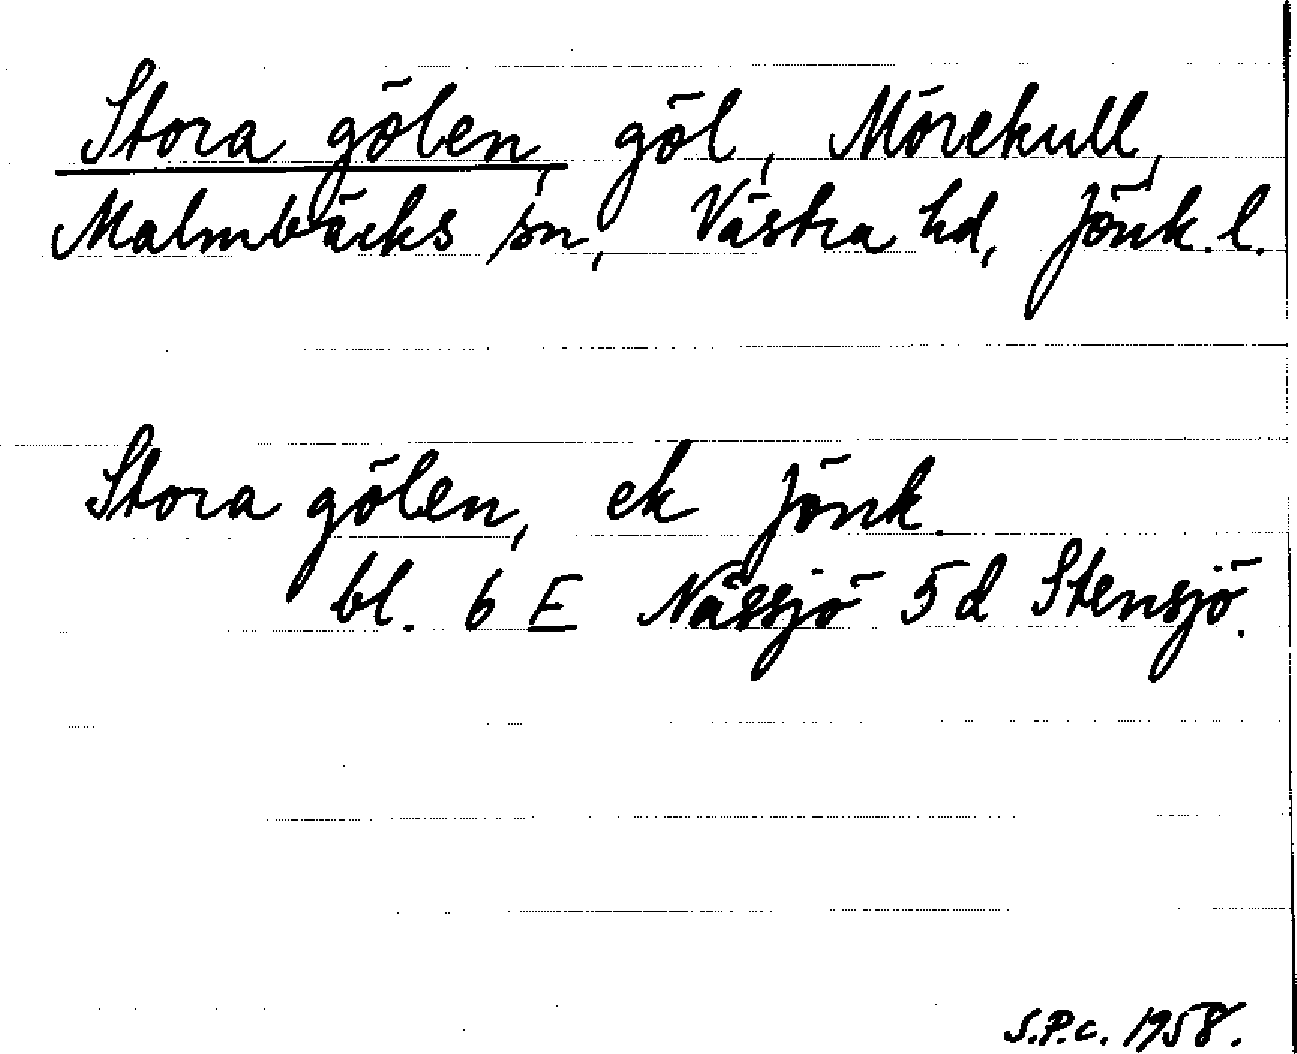 Stora gölen, göl, Mörekull,
Malmbäcks sn, Västra hd, Jönk. l.
Stora gölen, ek Jönk.
bl. 6 E Nässjö 5d Stensjö.
S.P.c. 1958.